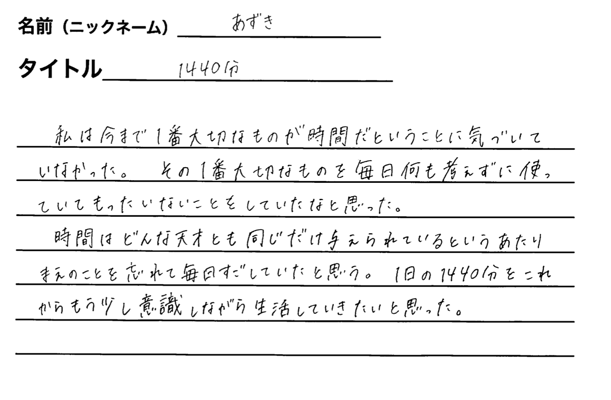 名前（ニックネーム） あずき
タイトル 1440分
私は今まで1番大切なものが時間だということに気づいて
いなかった。 その1番大切なものを毎日何も考えずに使っ
ていてもったいないことをしていたなと思った。
時間はどんな天才とも同じだけ与えられているというあたり
まえのことを忘れて毎日すごしていたと思う。 1日の1440分をこれ
からもう少し意識しながら生活していきたいと思った。